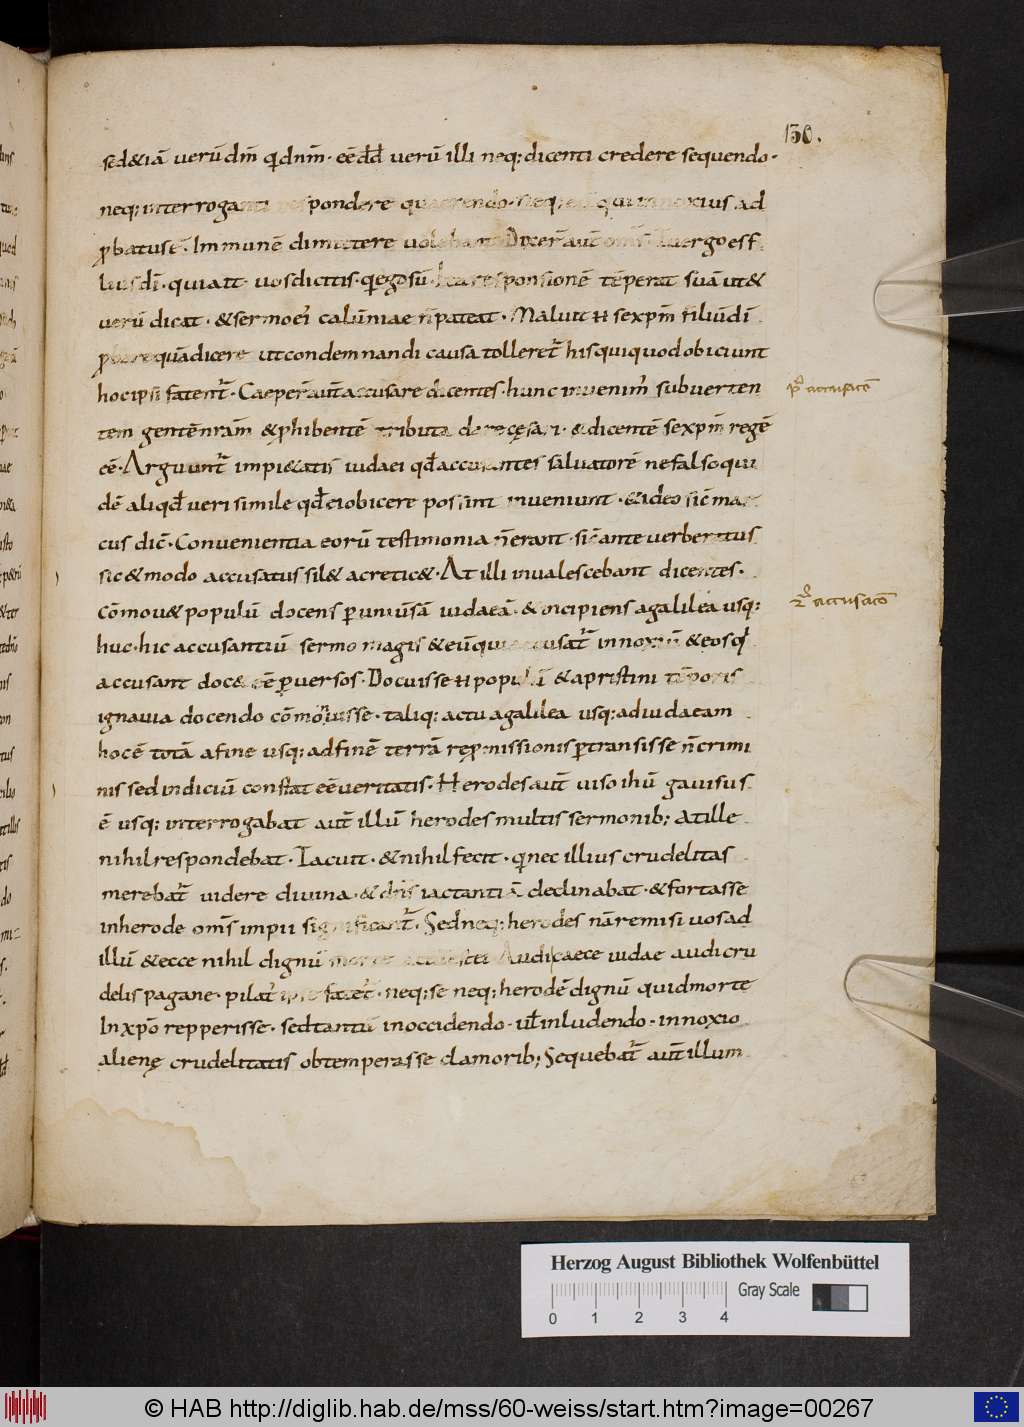 130.
sed&iā verū dm̄ qđ dnm̄· eēdđ verū illi neq; dicenti credere sequendo·
neq; interroganti respondere quaerendo· innoxius ad
p̱batus ē· Inmunē dimittere volebant Dixer̄ aūt om̄s Tu ergo es f
lius dī· qui ait· vos dicitis· q̄ ego sū· Ita responsionē tēperat suā ut &
verū dicat· & sermo eī calūniae n̄ pateat· Maluit .n. se xp̄m filiū dī
p̱bare quā dicere ut condemnandi causa tolleret̄ his qui quod obiciunt
hoc ipsi fatent̄· Caeper̄ aūt accusare dicentes· hunc invenim̄ subverten
tem gentē nrām & p̱hibentē tributa dare cęsari· & dicentē se xp̄m regē
p̄ accusatō
eē· Arguunt̄ impi&atis iudaei qđ accusantes salvatorē ne falso qui
dē aliqđ veri simile qđ ei obicere possint inveniunt· & ideo sic̄ mar
cus dic̄· Convenientia eorū testimonia n̄ erant· sic̄ ante verberatus
sic & modo accusatus sil& ac retic&· At illi invalescebant dicentes·
Cōmov& populū docens p̱ univsā iudaeā· & incipiens a galilea usq;
2 accusatō
huc· hic accusantiū sermo magis & eū qui accusat̄ innoxiū & eos q̄
accusant doc& eē p̱versos· Docuisse .n. populū & a pristini tēporis
ignavia docendo cōmovisse· taliq; actu a galilea usq; ad iudaeam
hoc ē totā a fine usq; ad finē terrā rep̱missionis p̱transisse n̄ crimi
nis sed indiciū constat eē veritatis· Herodes aūt viso ihū gavisus
ē usq; interrogabat aūt illū herodes multis sermonib; at ille
nihil respondebat· Tacuit· & nihil fecit· q̄ nec illius crudelitas
merebat̄ videre divina· & dn̄s iactantiā declinabat· & fortasse
in herode om̄s impii significant̄· Sed neq; herodes nā remisi vos ad
illū & ecce nihil dignū morte actū est ei Audi caece iudae audi cru
delis pagane· pilat̄ ipse fatet̄· neq; se neq; herodē dignū quid morte
In xp̄o repperisse· sed tantū in occidendo· ul̄ inludendo· innoxio
alienę crudelitatis obtemperasse clamorib; Sequebat̄ aūt illum
Herzog August Bibliothek Wolfenbüttel
Gray Scale
0 1 2 3 4
© HAB http://diglib.hab.de/mss/60-weiss/start.htm?image=00267